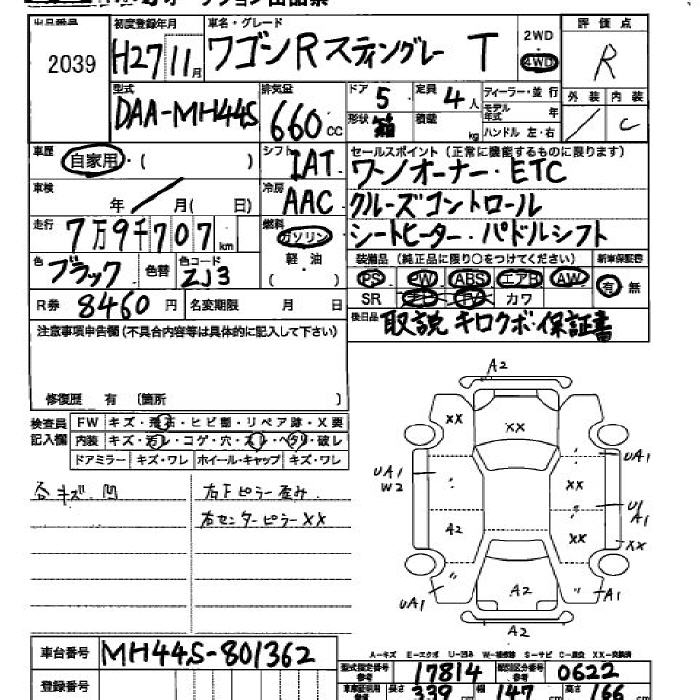 出品番号 初度登録年月 車名・グレード 2WD 評価点
2039 H27 11月 ワゴンR スティングレー T 4WD R
型式 排気量 ドア 5 定員 4人 ディーラー・並行 外装 内装
DAA-MH44S 660cc 形状 箱 積載 kg モデル年式 年 ハンドル 左・右 / C
車歴 自家用・( ) シフト IAT セールスポイント(正常に機能するものに限ります)
ワンオーナー・ETC
車検 年 月( 日) 冷房 AAC クルーズコントロール
走行 7万9千707km 燃料 ガソリン シートヒーター・パドルシフト
軽油 装備品(純正品に限り○をつけてください) 新車保証書
色 ブラック 色替 色コード ZJ3 ( ) PS PW ABS エアB AW 有 無
R券 8460円 名変期限 月 日 SR カワ
注意事項申告欄(不具合内容等は具体的に記入して下さい) 後日品 取説 キロクボ・保証書
修復歴 有 〔箇所 〕
検査員記入欄 FW キズ・飛石・ヒビ割・リペア跡・X要
内装 キズ・汚レ・コゲ・穴・スレ・ヘタリ・破レ
ドアミラー キズ・ワレ ホイール・キャップ キズ・ワレ
各キズ 凹 右Fピラー歪み
右センターピラーXX
A2
XX XX
UA1 UA1
W2 XX
U1
A1
A2 XX XX
A2
UA1 A1
A2
A-キズ E-エクボ U-凹み W-補修跡 S-サビ C-腐食 XX-交換済
車台番号 MH44S-801362 型式指定番号 参考 17814 類別区分番号 参考 0622
登録番号 長さ 339 cm 幅 147 cm 高さ 166 cm